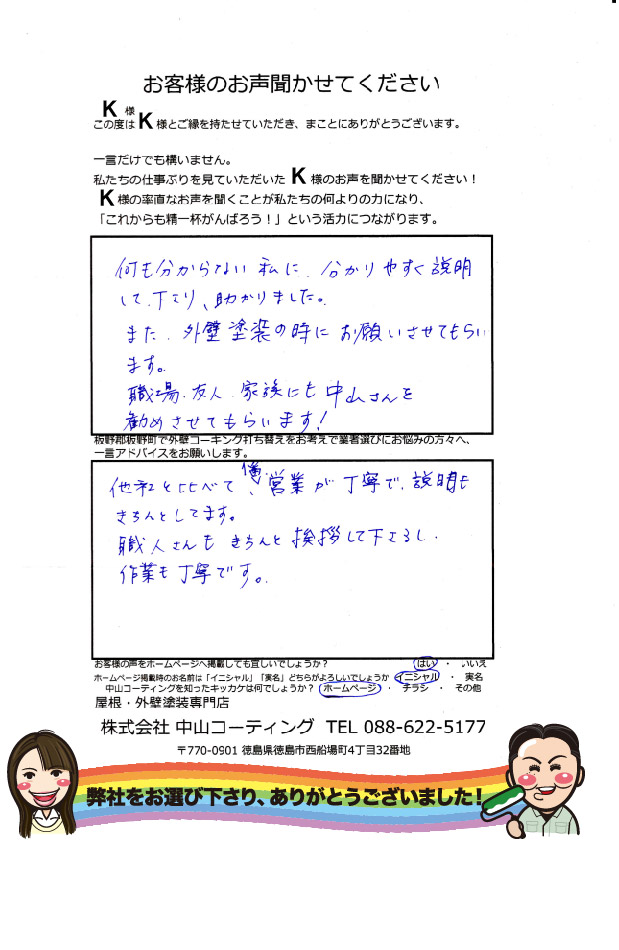 お客様のお声聞かせてください
K 様
この度は K 様とご縁を持たせていただき、まことにありがとうございます。
一言だけでも構いません。
私たちの仕事ぶりを見ていただいた K 様のお声を聞かせてください！
K 様の率直なお声を聞くことが私たちの何よりの力になり、
「これからも精一杯がんばろう！」という活力につながります。
何も分からない私に、分かりやすく説明
して下さり、助かりました。
また、外壁塗装の時にお願いさせてもらい
ます。
職場、友人、家族にも中山さんを
勧めさせてもらいます！
板野郡板野町で外壁コーキング打ち替えをお考えで業者選びにお悩みの方々へ、
一言アドバイスをお願いします。
他社と比べて、営業が丁寧で、説明も
きちんとしてます。
職人さんもきちんと挨拶して下さるし、
作業も丁寧です。
お客様の声をホームページへ掲載しても宜しいでしょうか？ はい ・ いいえ
ホームページ掲載時のお名前は「イニシャル」「実名」どちらがよろしいでしょうか イニシャル ・ 実名
中山コーティングを知ったキッカケは何でしょうか？ ホームページ ・ チラシ ・ その他
屋根・外壁塗装専門店
株式会社 中山コーティング TEL 088-622-5177
〒770-0901 徳島県徳島市西船場町4丁目32番地
弊社をお選び下さり、ありがとうございました！